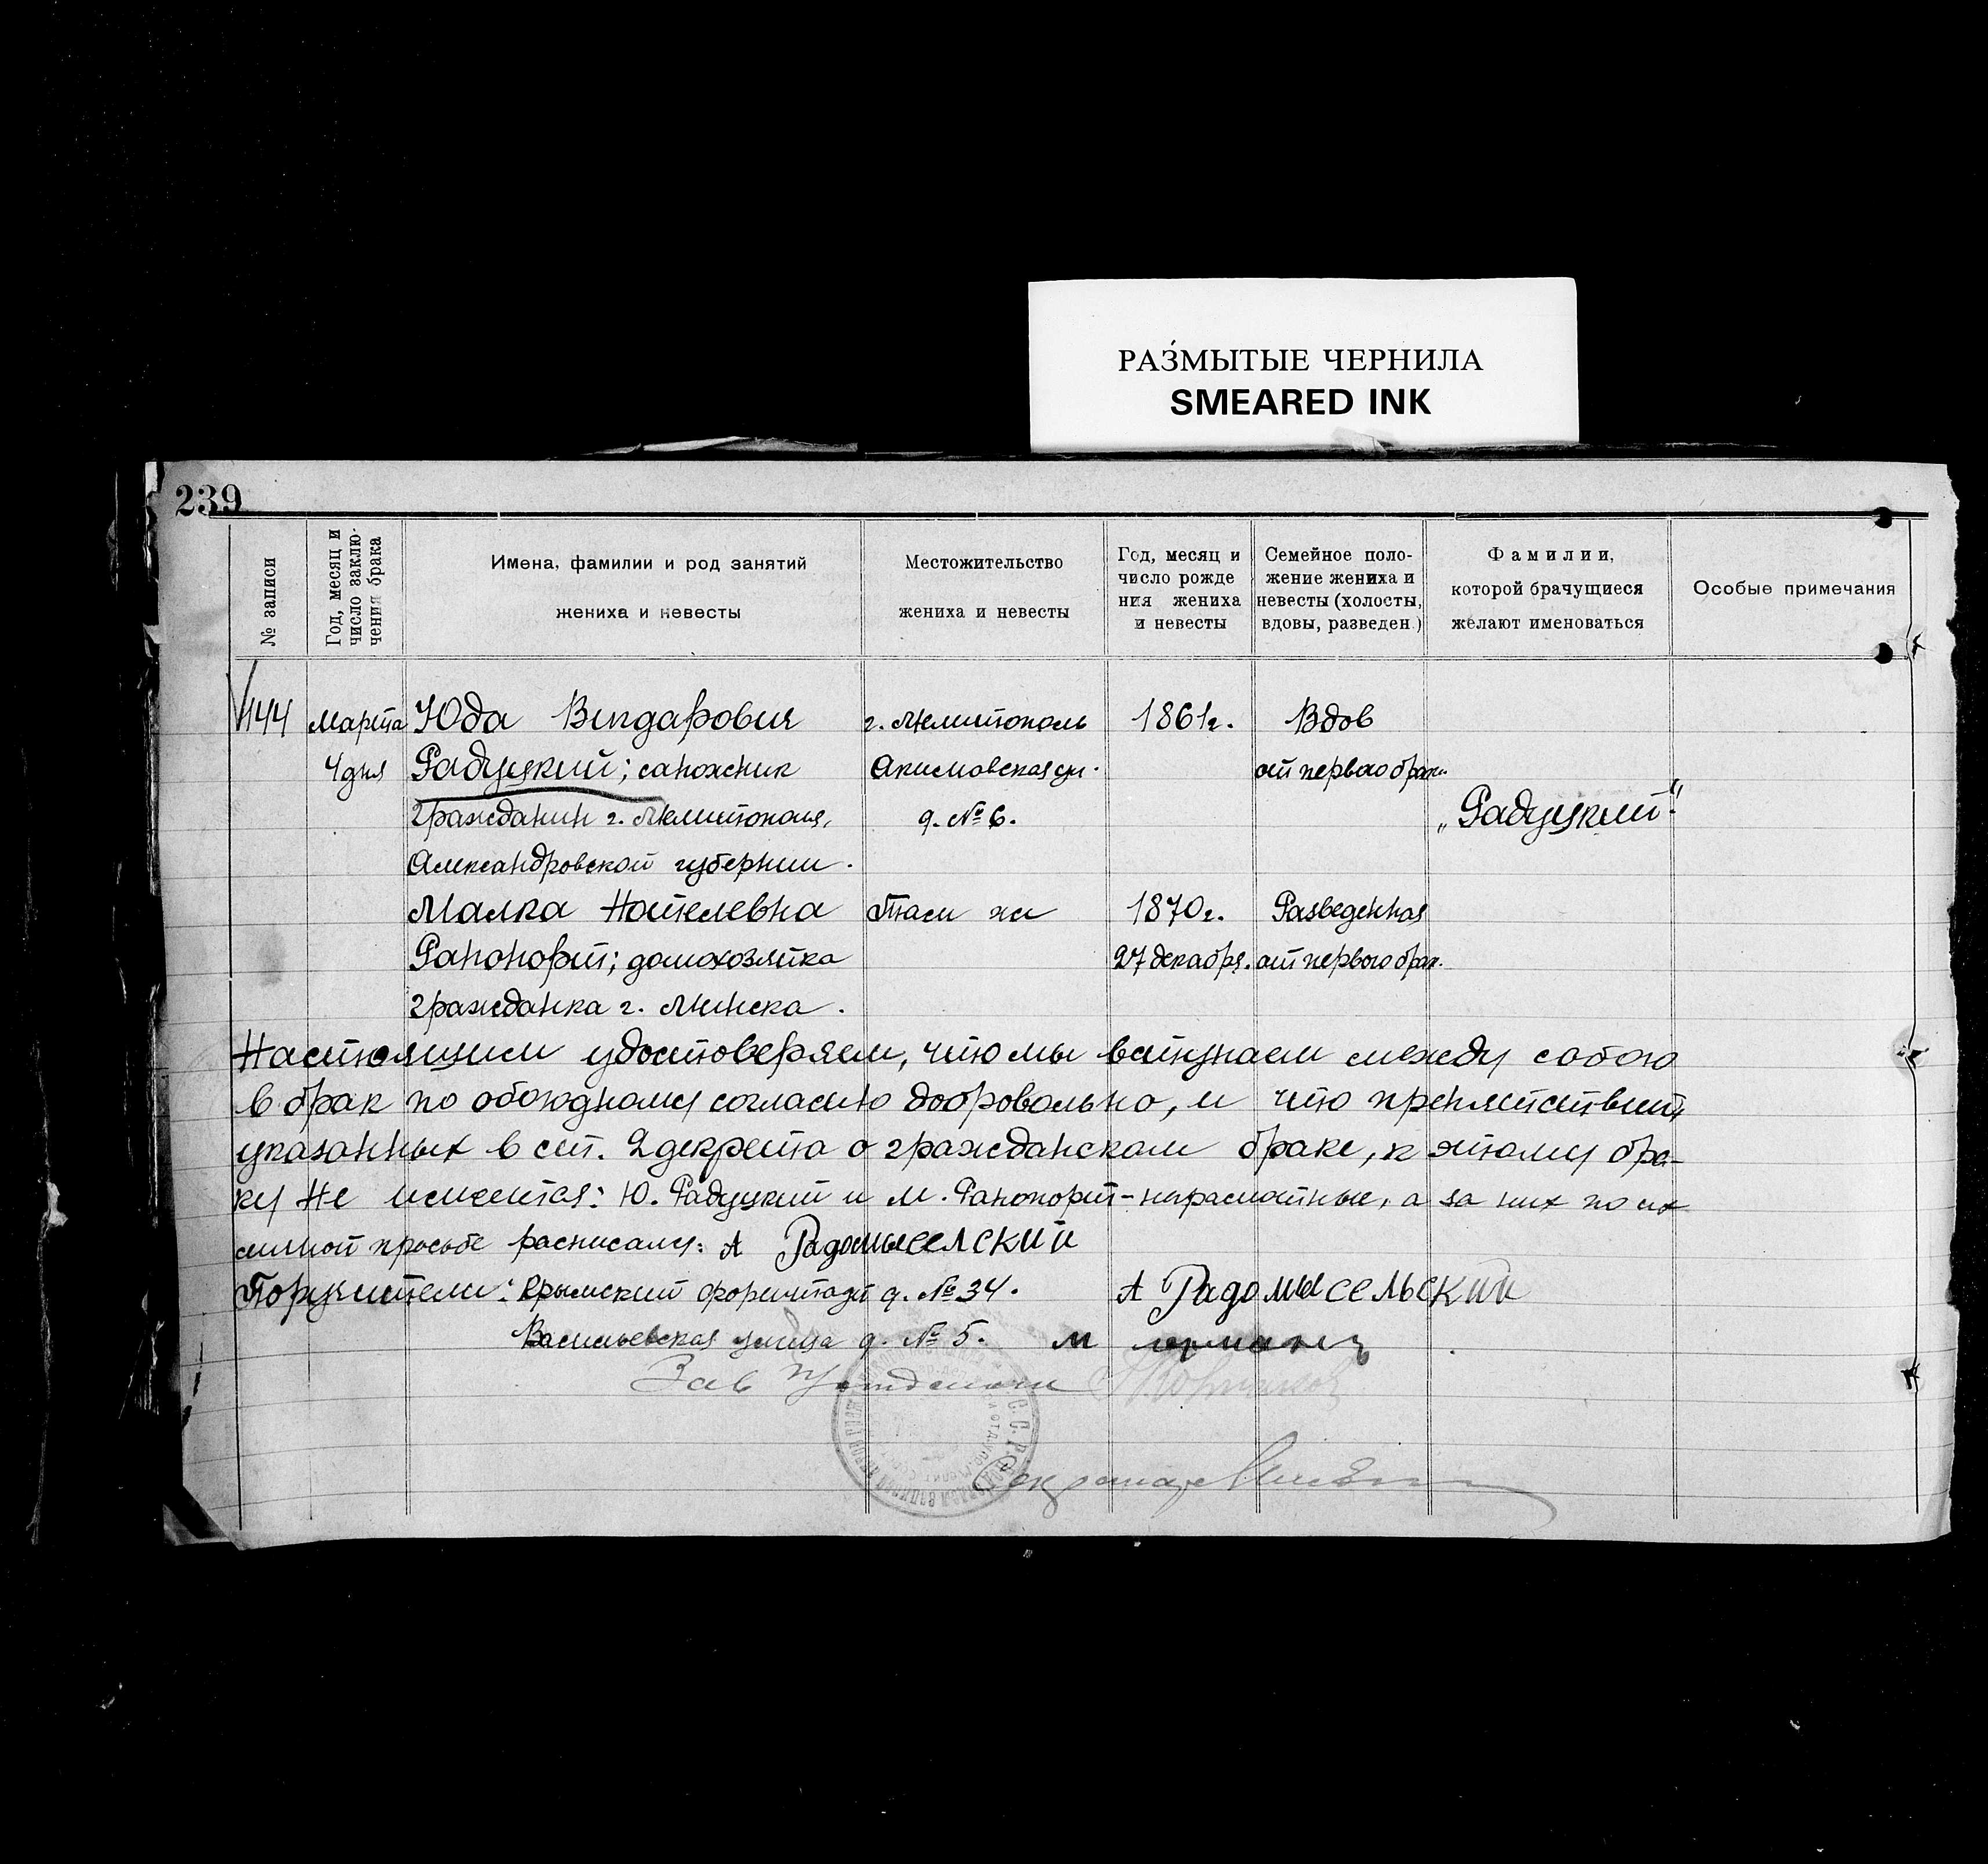 РАЗМЫТЫЕ ЧЕРНИЛА
SMEARED INK
239
№ записи
Год, месяц и число заклю-чения брака
Имена, фамилии и род занятий
жениха и невесты
Местожительство
жениха и невесты
Год, месяц и
число рожде
ния жениха
и невесты
Семейное поло-
жение жениха и
невесты (холосты,
вдовы, разведен.)
Фамилии,
которой брачущиеся
желают именоваться
Особые примечания
144 марта Юда г. Мелитополь 1861г. Вдов
4 дня Радуцкий; сапожник Акимовская ул. от первого брак.
гражданин г. Мелитополя, д. №6. „Радуцкий".
Александровской губернии.
Малка Нотелевна Там же 1870г. Разведенная
Рапопорт; домохозяйка 27 декабря. от первого брак.
гражданка г. Минска.
Настоящим удостоверяем, что мы вступаем между собою
в брак по обоюдному согласию добровольно, и что препятствий,
указанных в ст. 2 декрета о гражданском браке, к этому бра-
ку не имеется: Ю. Радуцкий и М. Рапопорт - неграмотные, а за них по их
личной просьбе расписался: А Радомыселский
Поручители: Крымский форштадт д. №34. А Радомысельский
Васильевская улица д. № 5. М
Зав
Секретарь